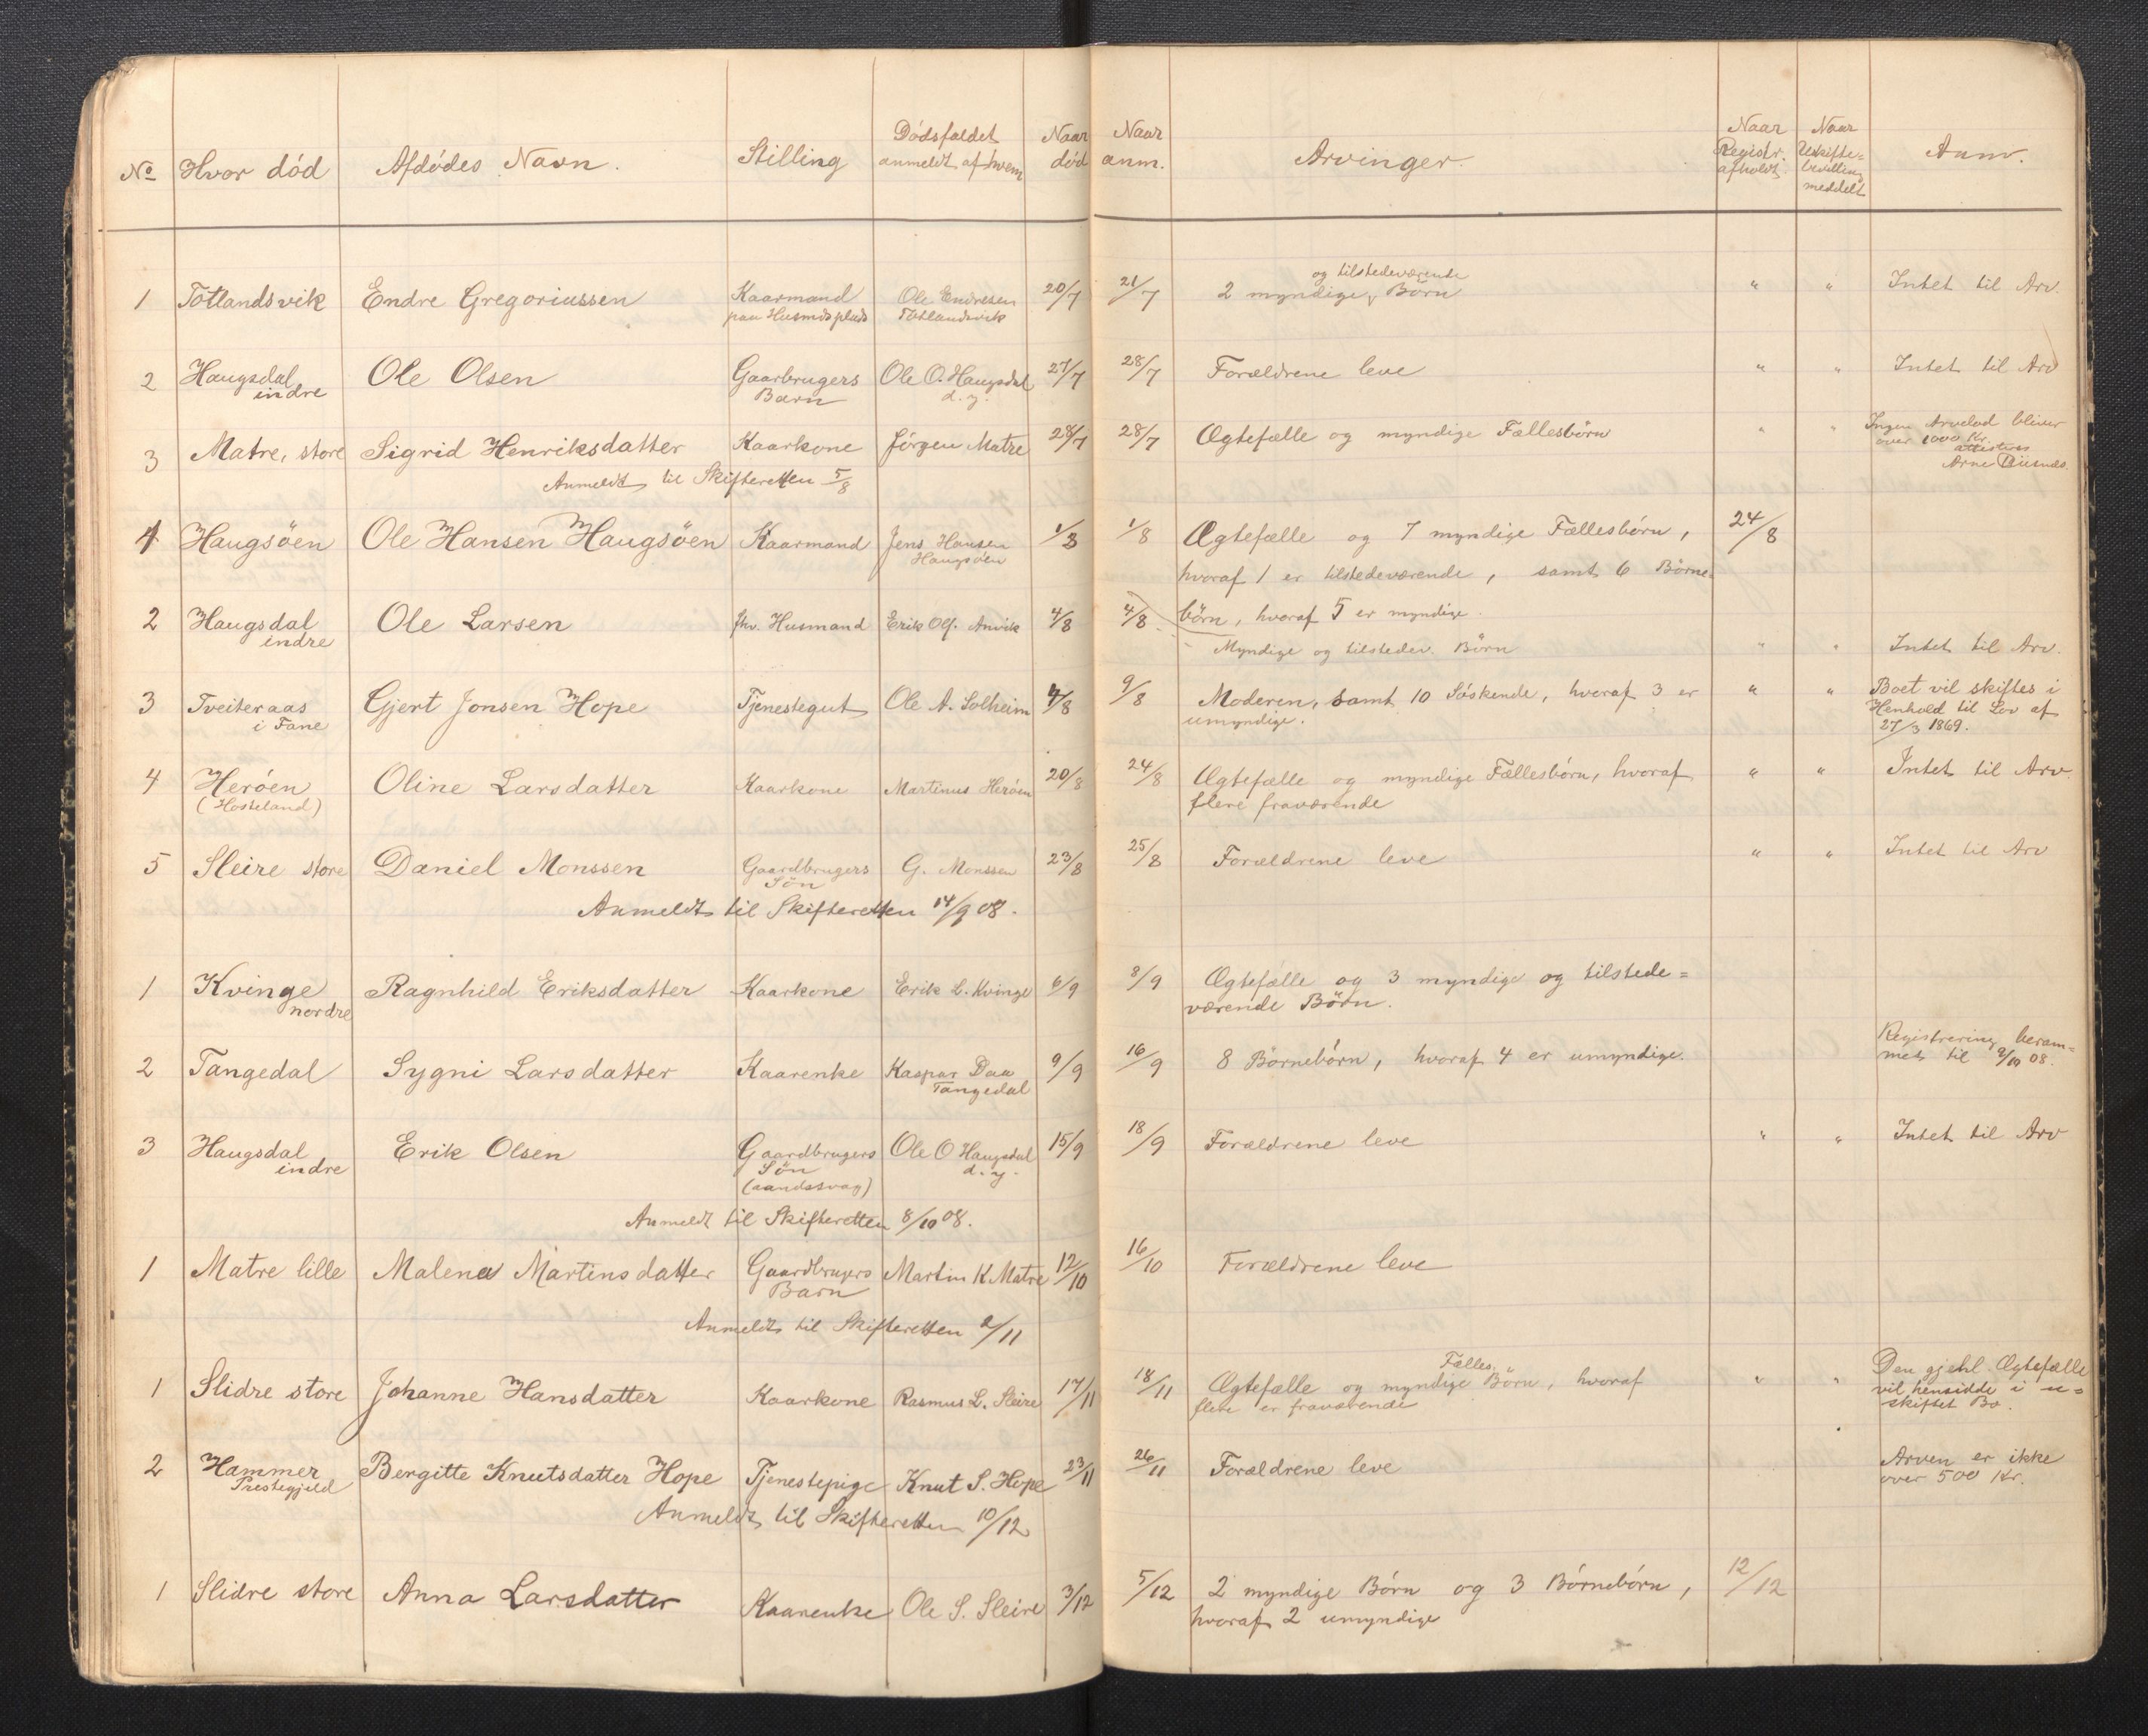 No Hvor död Afdödes Navn. Stilling Dödsfaldet anmeldt af hvem Naar död Naar anm. Arvinger. Naar Registr. afholdt. Naar Uskifte-bevilling meddelt Anm.
1 Totlandsvik Endre Gregoriussen Kaarmand paa Husmdsplads Ole Endresen Totlandsvik 20/7 21/7 2 myndige og tilstedeværende Börn " " Intet til Arv.
2 Haugsdal indre Ole Olsen Gaarbrugers Barn Ole O. Haugsdal d.y. 27/7 28/7 Forældrene leve " " Intet til Arv
3 Matre, store Sigrid Henriksdatter Kaarkone Jörgen Matre 28/7 28/7 Ægtefælle og myndige Fællesbörn " " Ingen Arvelod bliver
over 1000 Kr.
attesteres
Arne Risnes.
Anmeldt til Skifteretten 5/8
1 Haugsöen Ole Hansen Haugsöen Kaarmand Jens Hansen Haugsöen 1/8 1/8 Ægtefælle og 7 myndige Fællesbörn, 24/8
hvoraf 1 er tilstedeværende, samt 6 Börne-
börn, hvoraf 5 er myndige.
2 Haugsdal indre Ole Larsen fhv. Husmand Erik Ols. Anvik 4/8 4/8 Myndige og tilstedev. Börn " " Intet til Arv.
3 Tveiteraas i Fane Gjert Jonsen Hope Tjenestegut Ole A. Solheim 4/8 9/8 Moderen, samt 10 Söskende, hvoraf 3 er " " Boet vil skiftes i
umyndige. Henhold til Lov af
27/3 1869.
4 Heröen (Hosteland) Oline Larsdatter Kaarkone Martinus Heröen 20/8 24/8 Ægtefælle og myndige Fællesbörn, hvoraf " " Intet til Arv.
flere fraværende
5 Sleire store Daniel Monssen Gaardbrugers Sön G. Monssen 23/8 25/8 Forældrene leve " " Intet til Arv
Anmeldt til Skifteretten 14/9 08.
1 Kvinge nordre Ragnhild Eriksdatter Kaarkone Erik L. Kvinge 6/9 8/9 Ægtefælle og 3 myndige og tilstede=
værende Börn.
2 Tangedal Sygni Larsdatter Kaarenke Kaspar Daa Tangedal 9/9 16/9 8 Börnebörn, hvoraf 4 er umyndige. Registrering beram=
met til 2/10 08.
3 Haugsdal indre Erik Olsen Gaardbrugers Sön (aandssvag) Ole O Haugsdal d.y. 15/9 18/9 Forældrene leve " " Intet til Arv
Anmeldt til Skifteretten 8/10 08.
1 Matre lille Malena Martinsdatter Gaardbrugers Barn Martin K Matre 12/10 16/10 Forældrene leve
Anmeldt til Skifteretten 2/11
1 Slidre store Johanne Hansdatter Kaarkone Rasmus L. Sleire 17/11 18/11 Ægtefælle og myndige Fælles Börn, hvoraf " " Den gjehl. Ægtefælle
flere er fraværende vil hensidde i u=
skiftet Bo.
2 Hammer Prestegjeld Bergitte Knutsdatter Hope Tjenestepige Knut S. Hope 23/11 26/11 Forældrene leve Arven er ikke
over 500 Kr.
Anmeldt til Skifteretten 10/12
1 Slidre store Anna Larsdatter Kaarenke Ole S. Sleire 3/12 5/12 2 myndige Börn og 3 Börnebörn, 12/12
hvoraf 2 umyndige